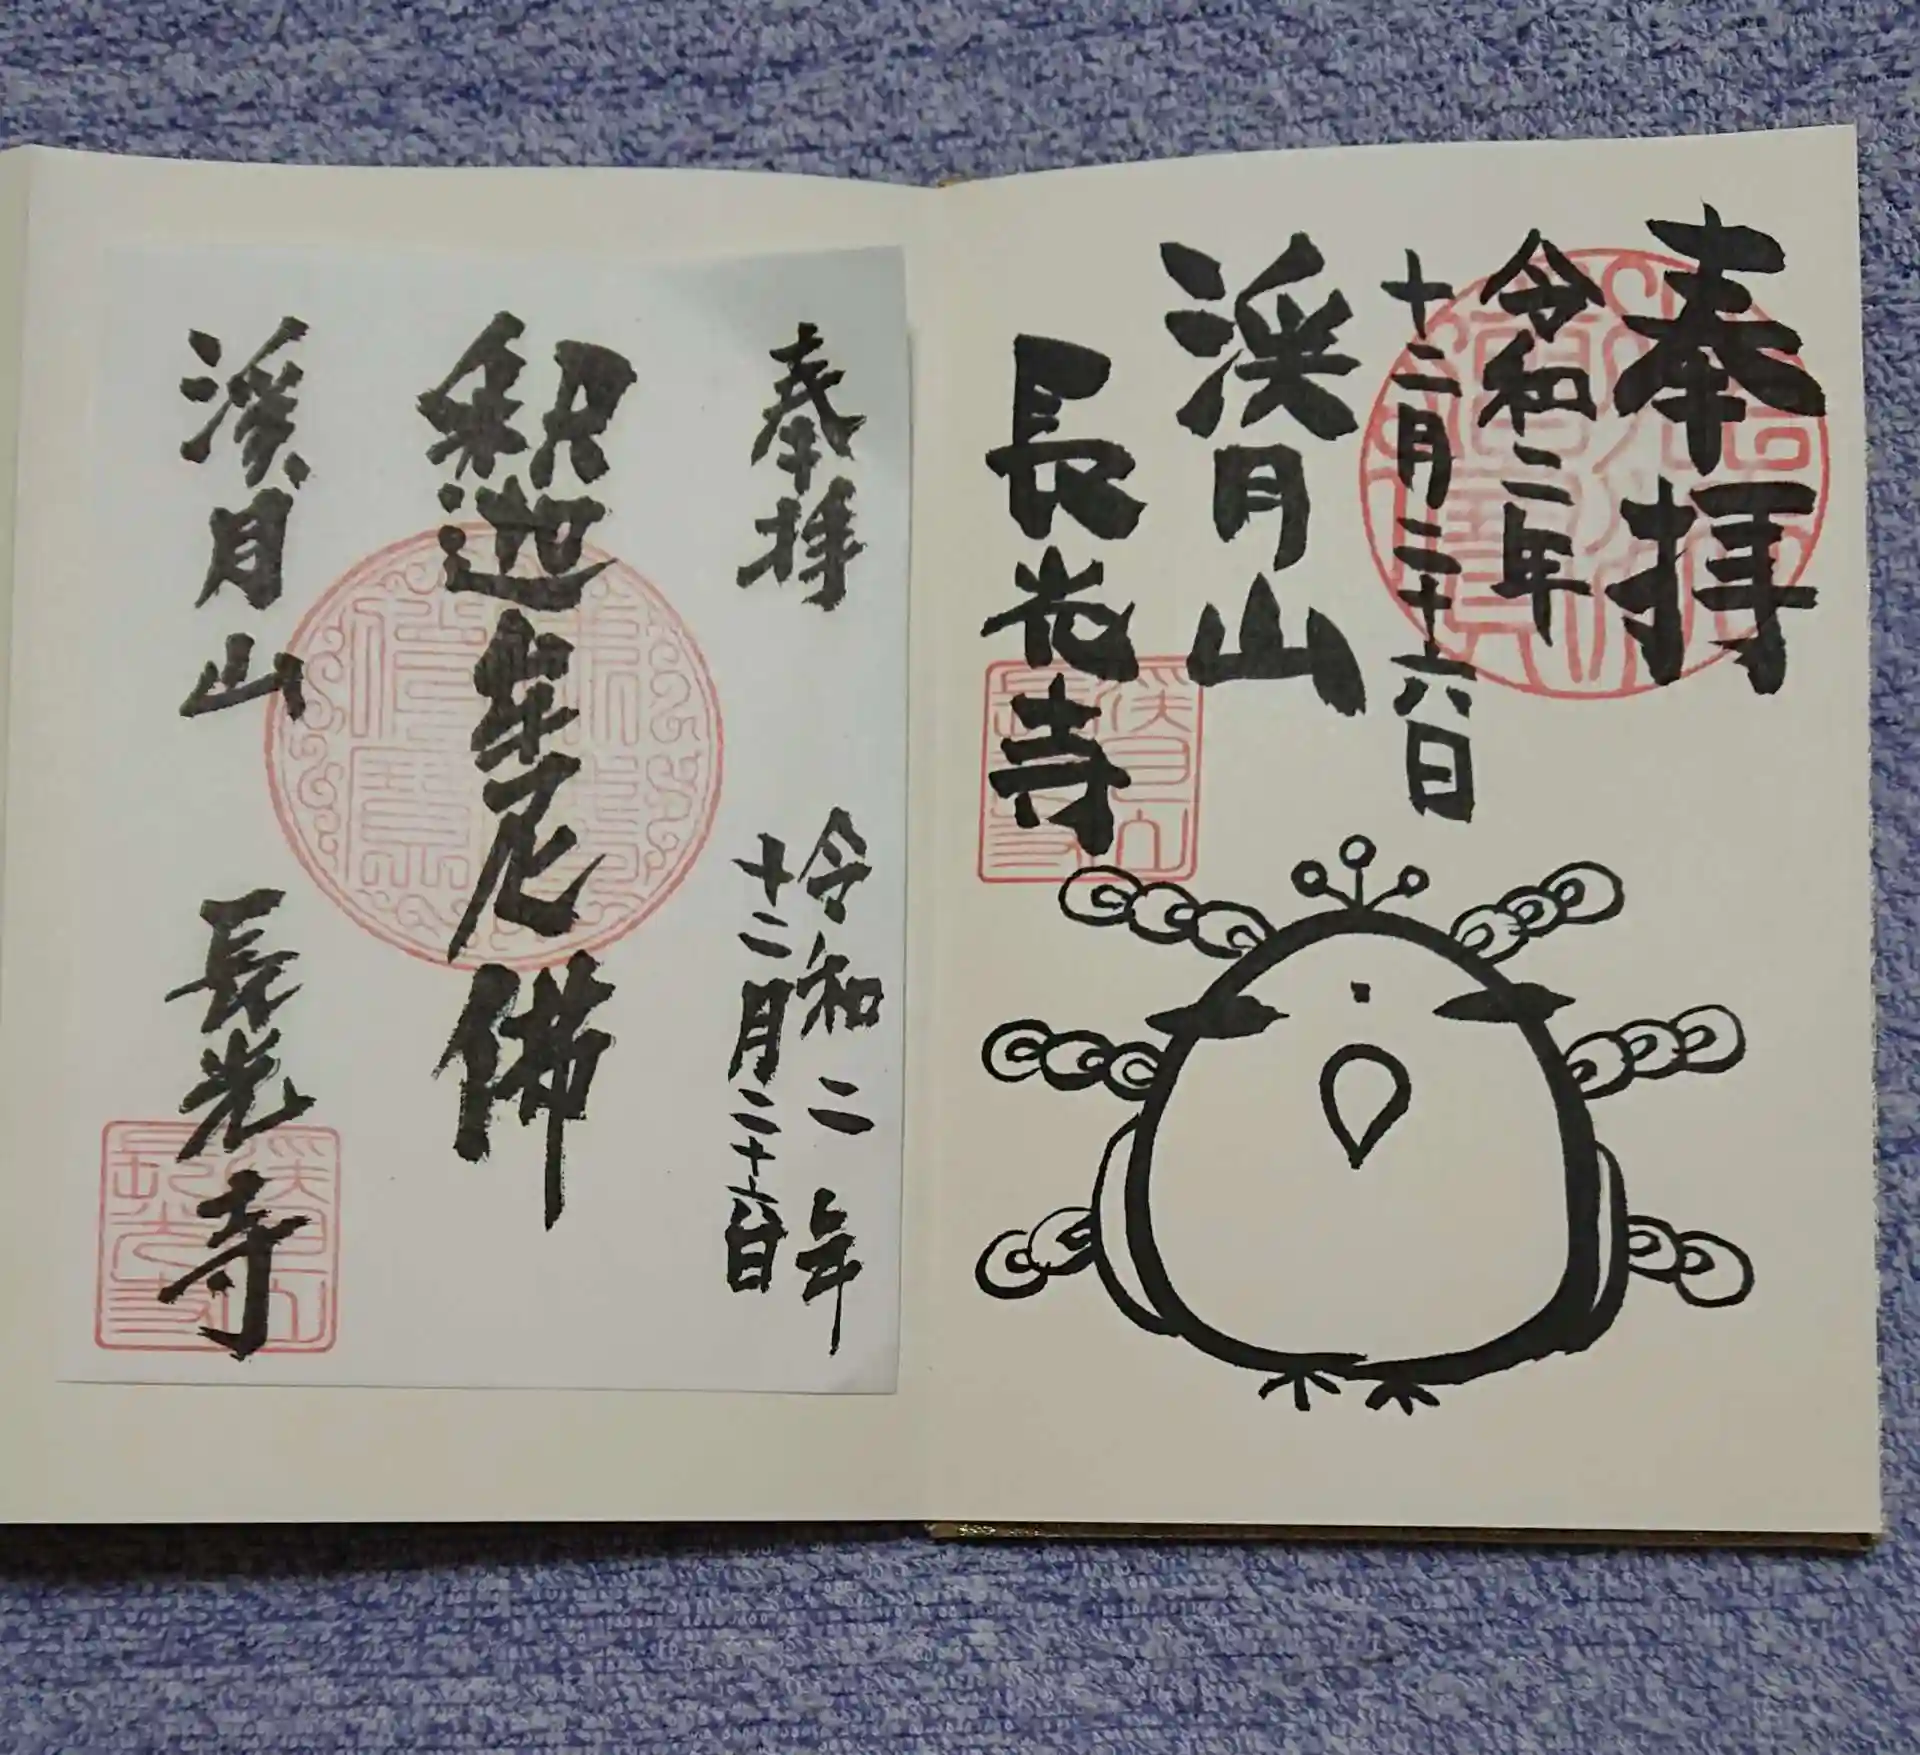 奉拝
令和二年
十二月二十六日
渓月山
長光寺
奉拝
令和二年
十二月二十六日
釈迦牟尼佛
渓月山 長光寺